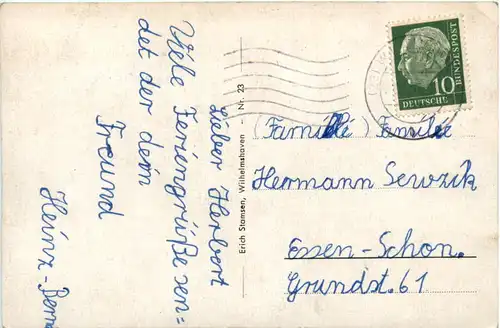 Lieber Herbert
Viele Feriengrüße sen=
det der dein
Freund
Heinz-Bern
Erich Stamsen, Wilhelmshaven - Nr. 23
10
DEUTSCHE
BUNDESPOST
(Familie) Familie
Hermann Sewzik
Essen-Schon.
Grundst. 61